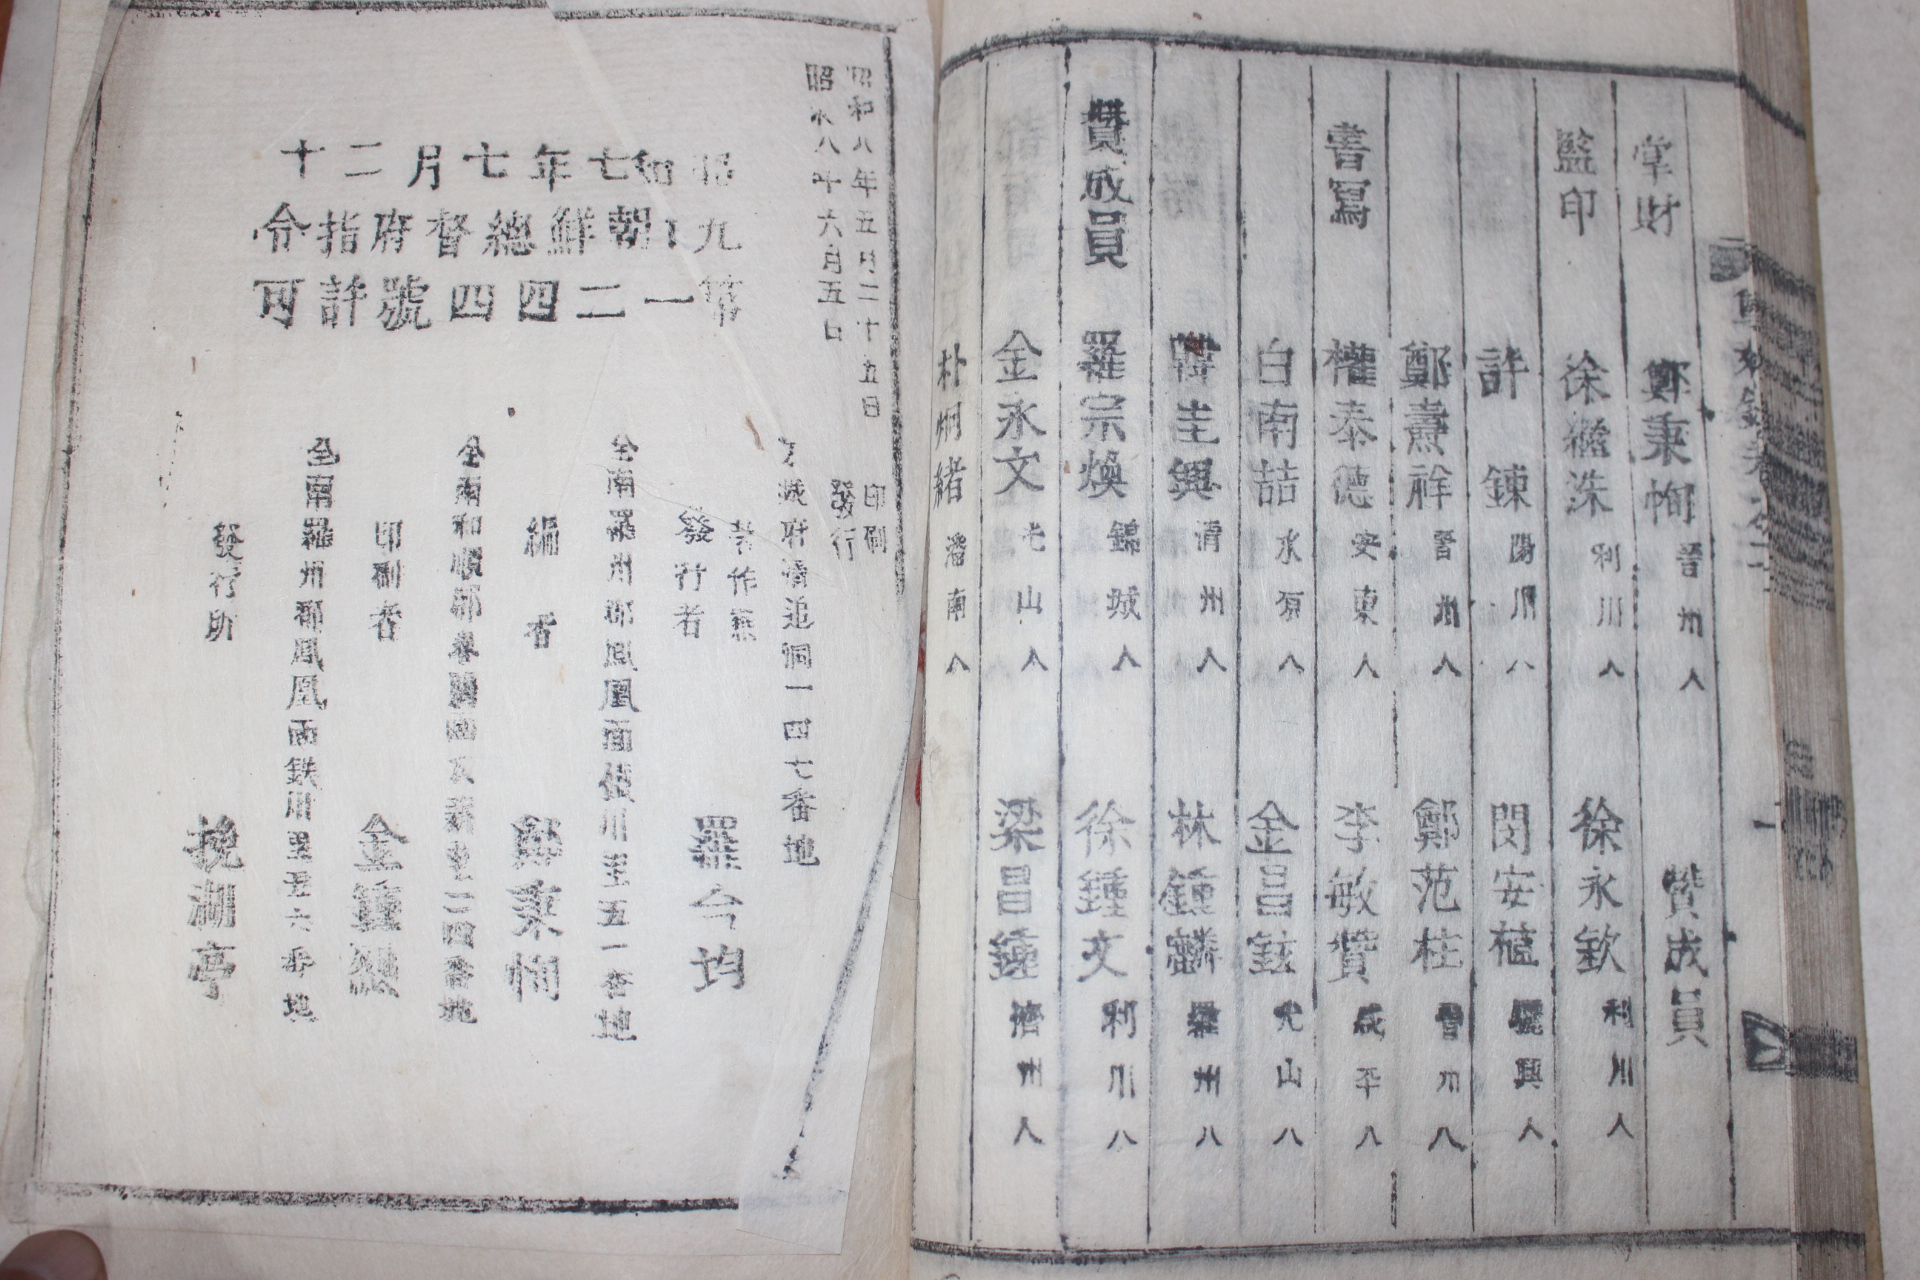 掌財 鄭秉恂 晋州人 贊成員
監印 徐繼洙 利川人 徐永欽 利川人
許鍊 陽川人 閔安植 驪興人
鄭熹祥 晋州人 鄭范柱 晋州人
書寫 權泰德 安東人 李敏贊 咸平人
白南喆 水原人 金昌鉉 光山人
韓圭興 淸州人 林鍾麟 羅州人
贊成員 羅宗煥 錦城人 徐鍾文 利川人
金永文 光山人 梁昌鍾 濟州人
朴炯緖 潘南人
昭和八年五月二十五日 印刷
昭和八年六月五日 發行
昭和七年七月二十
九日朝鮮總督府指令
第一二四四號許可
府淸進洞一四七番地
著作兼
發行者 羅今均
全南羅州郡鳳凰面
川里五一番地
編者 鄭秉恂
全南和順郡
二四番地
印刷者 金鍾
全南羅州郡鳳凰面鉄川里五六番地
發行所 挽湖亭